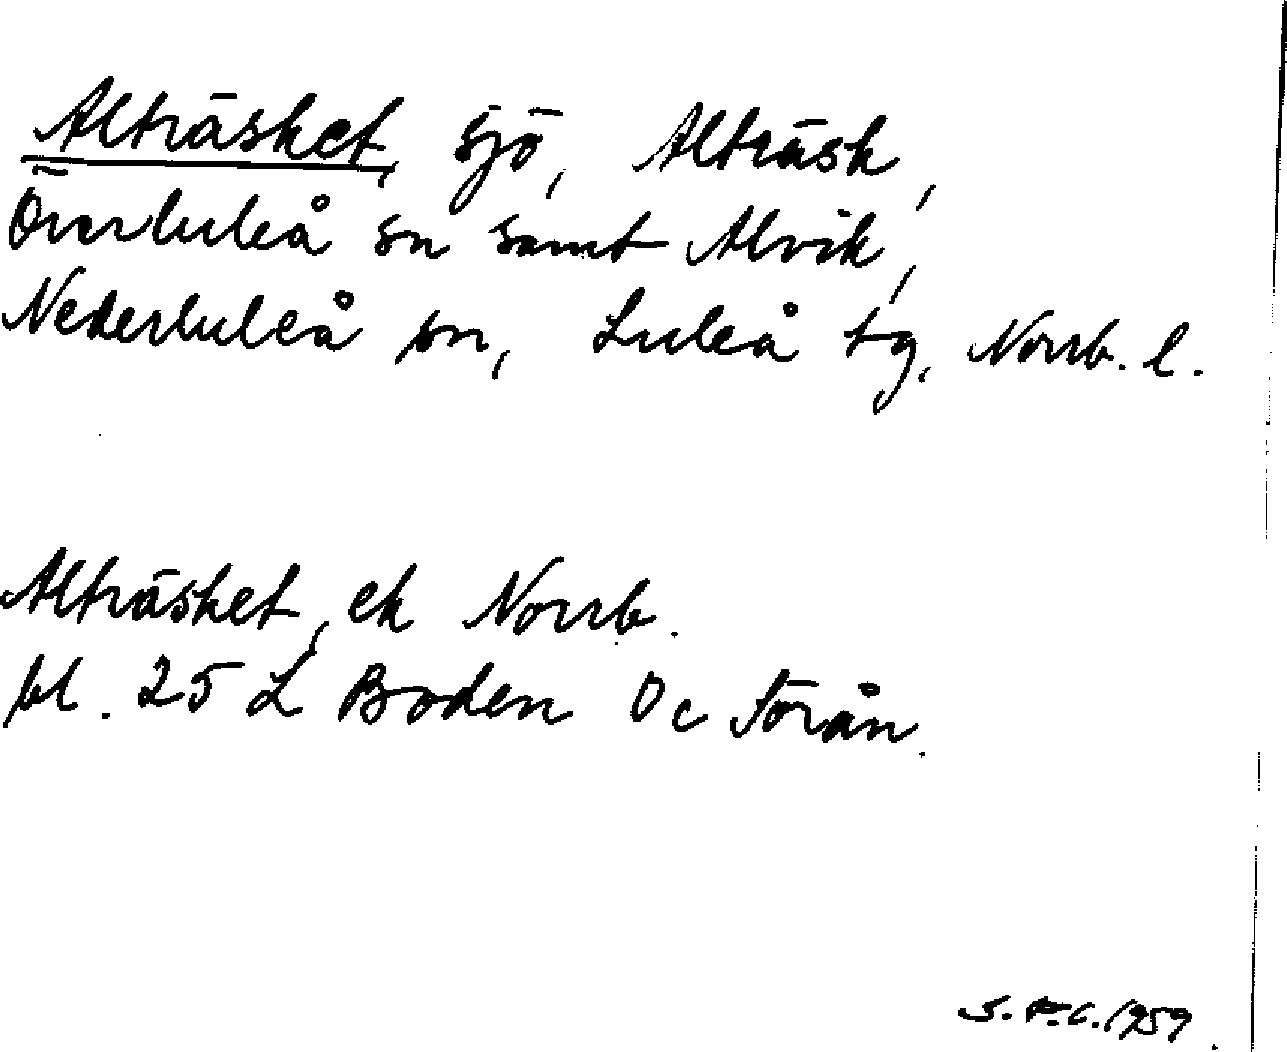 Alträsket, sjö, Alträsk,
Överluleå sn samt Alvik,
Nederluleå sn, Luleå tg, Norrb. l.
Alträsket, ek Norrb.
bl. 25 L Boden 0c Törån.
S.F.C. 1959.